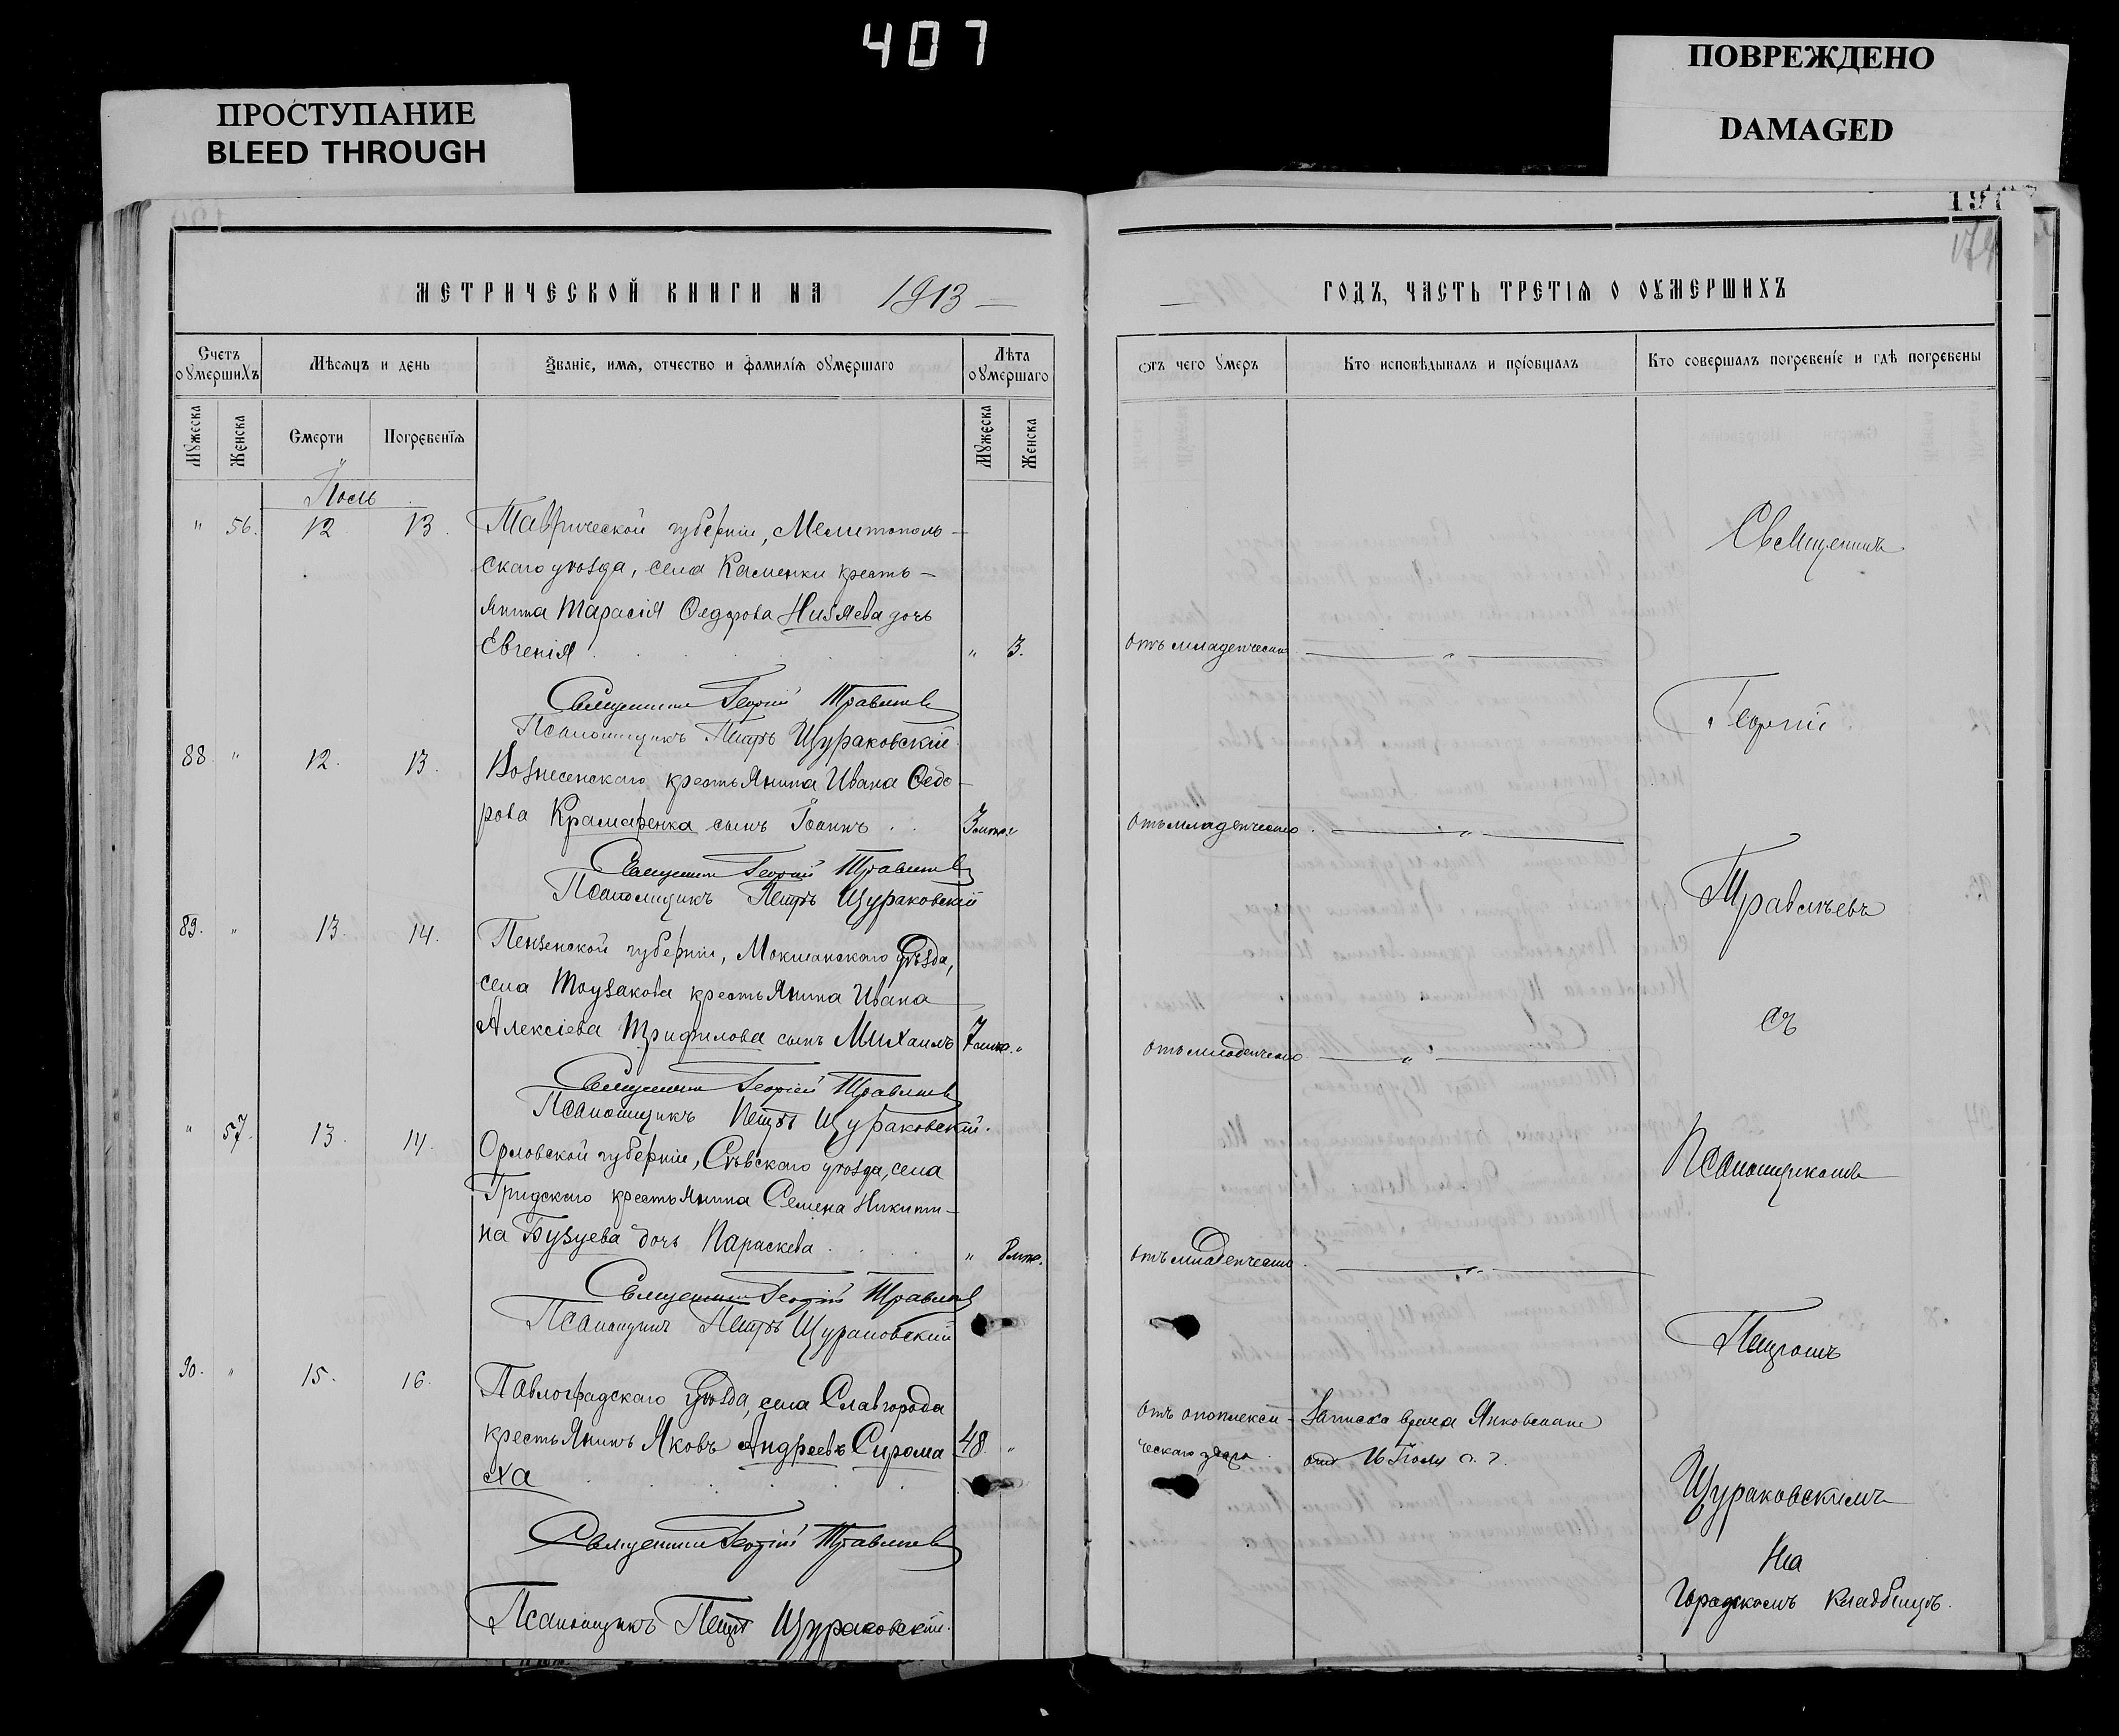 407
ПРОСТУПАНИЕ
BLEED THROUGH
ПОВРЕЖДЕНО
DAMAGED
191
МЕТРИЧЕСКОЙ КНИГИ НА 1913
Счетъ оумершихъ
Мѣсяцъ и день
Званіе, имя, отчество и фамилія оумершаго
Лѣта оумершаго
Мужеска
Женска
Смерти
Погребенїя
Мужеска
Женска
Іюль
" 56. 12 13. Таврической губерніи, Мелитополь-
скаго уѣзда, села Каменки кресть-
янина Тарасія Ѳедорова Низяева дочь
Евгенія " 3.
Священникъ Георгій Травлѣевъ
Псаломщикъ Петръ Щураковскій
88 " 12. 13. Вознесенскаго крестьянина Ивана Ѳедо-
рова Крамаренка сынъ Іоаннъ
Священникъ Георгій Травлѣевъ
Псаломщикъ Петръ Щураковскій
89. " 13. 14. Пензенской губерніи, Мокшанскаго Уѣзда,
села Тоузакова крестьянина Ивана
Алексіева Трифилова сынъ Михаилъ 7
Священникъ Георгій Травлѣевъ
Псаломщикъ Петръ Щураковскій.
" 57. 13. 14. Орловской губерніи, Сѣвскаго уѣзда, села
Гридскаго крестьянина Семена Никити-
на Бузуева дочь Параскева "
Священникъ Георгій Травлѣевъ
Псаломщикъ Петръ Щураковскій
90. " 15. 16. Павлоградскаго Уѣзда, села Славгорода
крестьянинъ Яковъ Андреевъ Сирома 48. "
ха
Священникъ Георгій Травлѣевъ
Псаломщикъ Петръ Щураковскій.
ГОДЪ, ЧАСТЬ ТРЕТІЯ О ОУМЕРШИХЪ
отъ чего умеръ
Кто исповѣдывалъ и пріобщалъ
Кто совершалъ погребеніе и гдѣ погребены
Священникъ
отъ младенческой "
Георгій
отъ младенческой "
Травлѣевъ
отъ младенческой "
съ
Псаломщикомъ
отъ младенческой "
Петромъ
отъ апоплекси- Записка врача Янковскаго
ческаго удара. отъ 16 Іюля с. г.
Щураковскимъ
На
Городскомъ кладбищѣ.